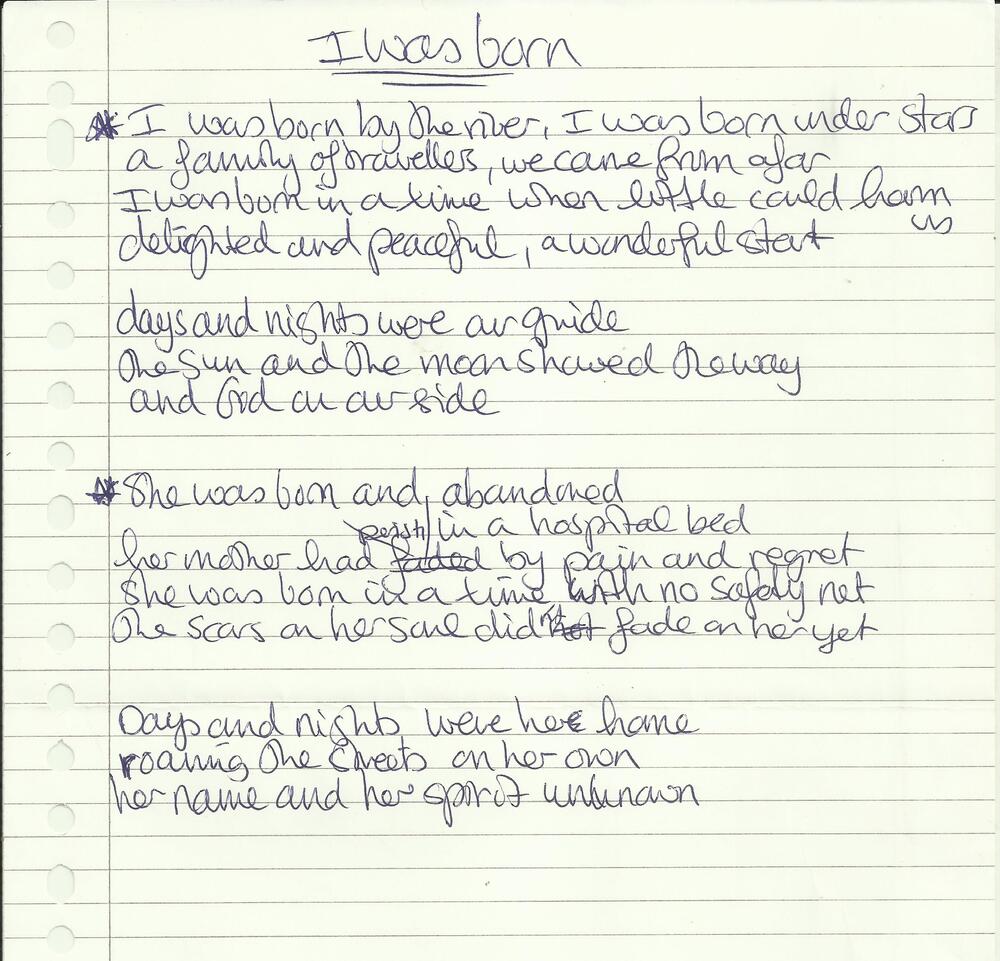 I was born
* I was born by the river, I was born under stars
a family of travellers, we came from afar
I was born in a time when little could harm
us
delighted and peaceful, a wonderful start
days and nights were our guide
the sun and the moon showed the way
and God on our side
* She was born and, abandoned
in a hospital bed
her mother had by pain and regret
She was born in a time with no safety net
The scars on her soul did fade on her yet
Days and nights were her home
roaming the streets on her own
her name and her spirit unknown